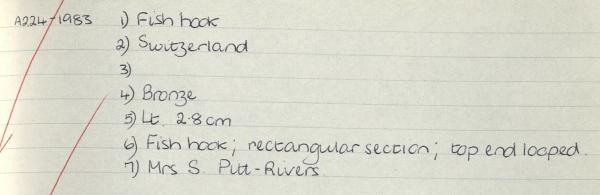 A224-1983 1) Fish hook
2) Switzerland
3)
4) Bronze
5) Lt. 2.8 cm
6) Fish hook; rectangular section; top end looped.
7) Mrs S. Pitt-Rivers